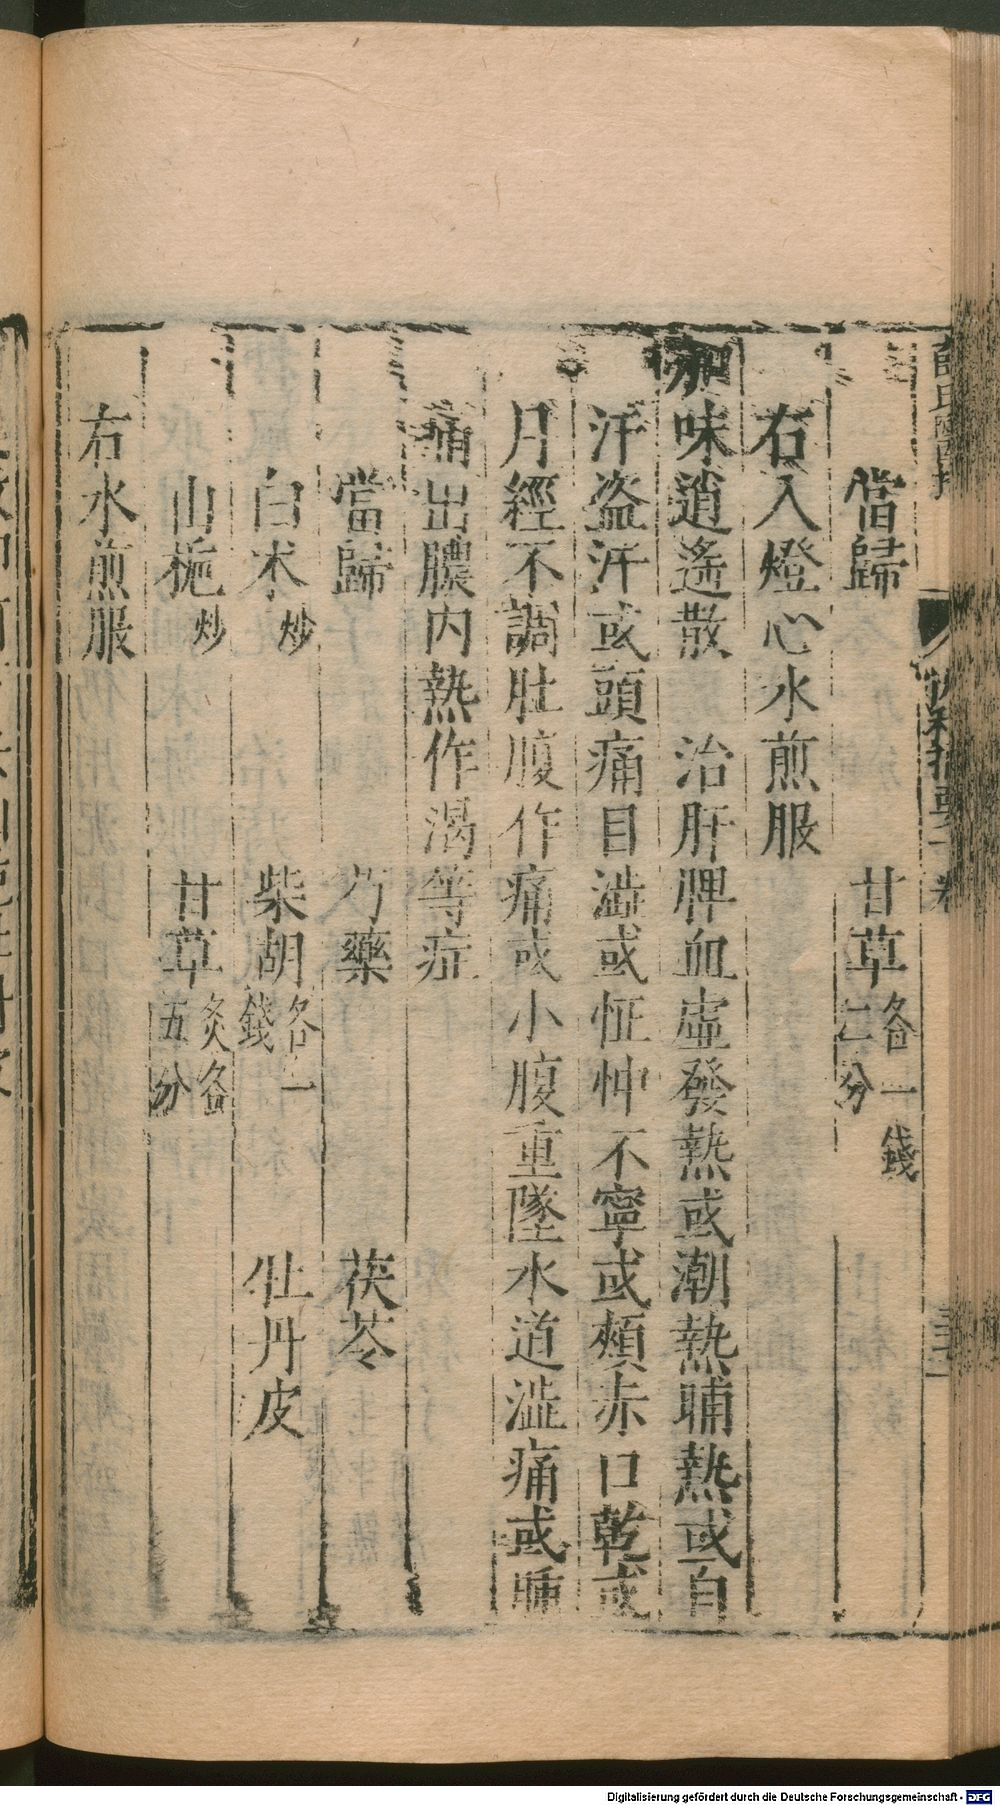 當歸　甘草各一錢二分
右入燈心水煎服
加味逍遙散　治肝脾血虛發熱或潮熱晡熱或自
汗盜汗或頭痛目澁或怔忡不寧或頰赤口乾或
月經不調肚腹作痛或小腹重墜水道澁痛或腫
痛出膿內熱作渴等症
當歸　芍藥　茯苓
白术炒　柴胡各一錢　牡丹皮
山梔炒　甘草炙各五分
右水煎服
Digitalisierung gefördert durch die Deutsche Forschungsgemeinschaft - DFG